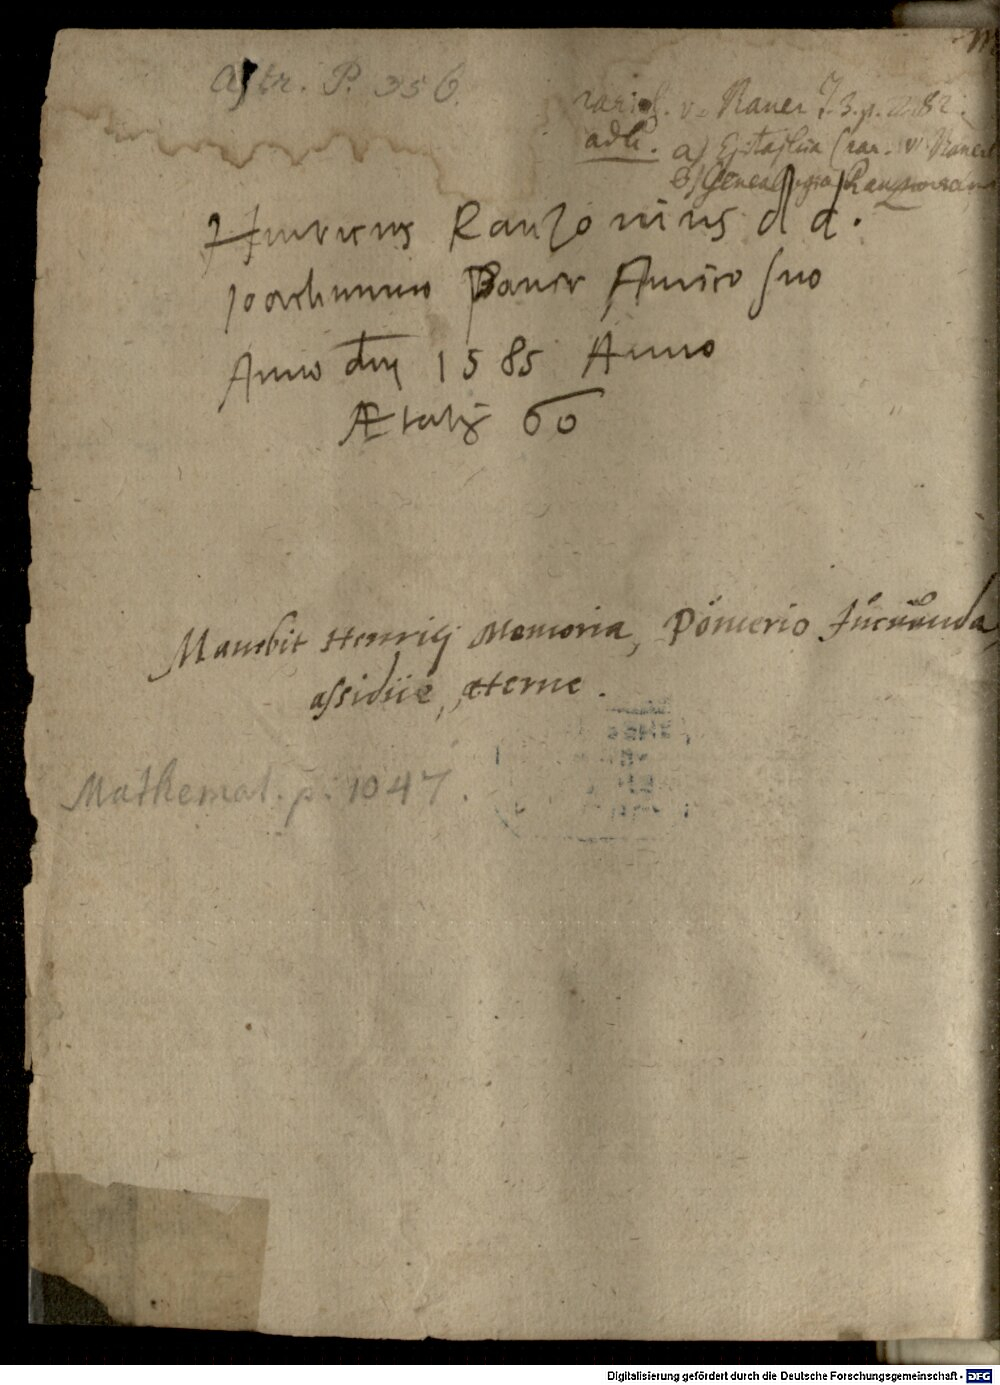 Astr. P. 356.
rariss. v. Bauer T. 3. p. 282.
adh. a) Epitaphia (rar. v. Bauer
b) Genealogia Ranzoviana
Hinricus Ranzovius d d.
Joachimmo Amico suo
Anno dm̄ 1585 Anno
Ætatis 60
Manebit Henrici Memoria, Pömerio Jucunda,
assidue, æterne.
Mathemat. p. 1047.
Digitalisierung gefördert durch die Deutsche Forschungsgemeinschaft - DFG